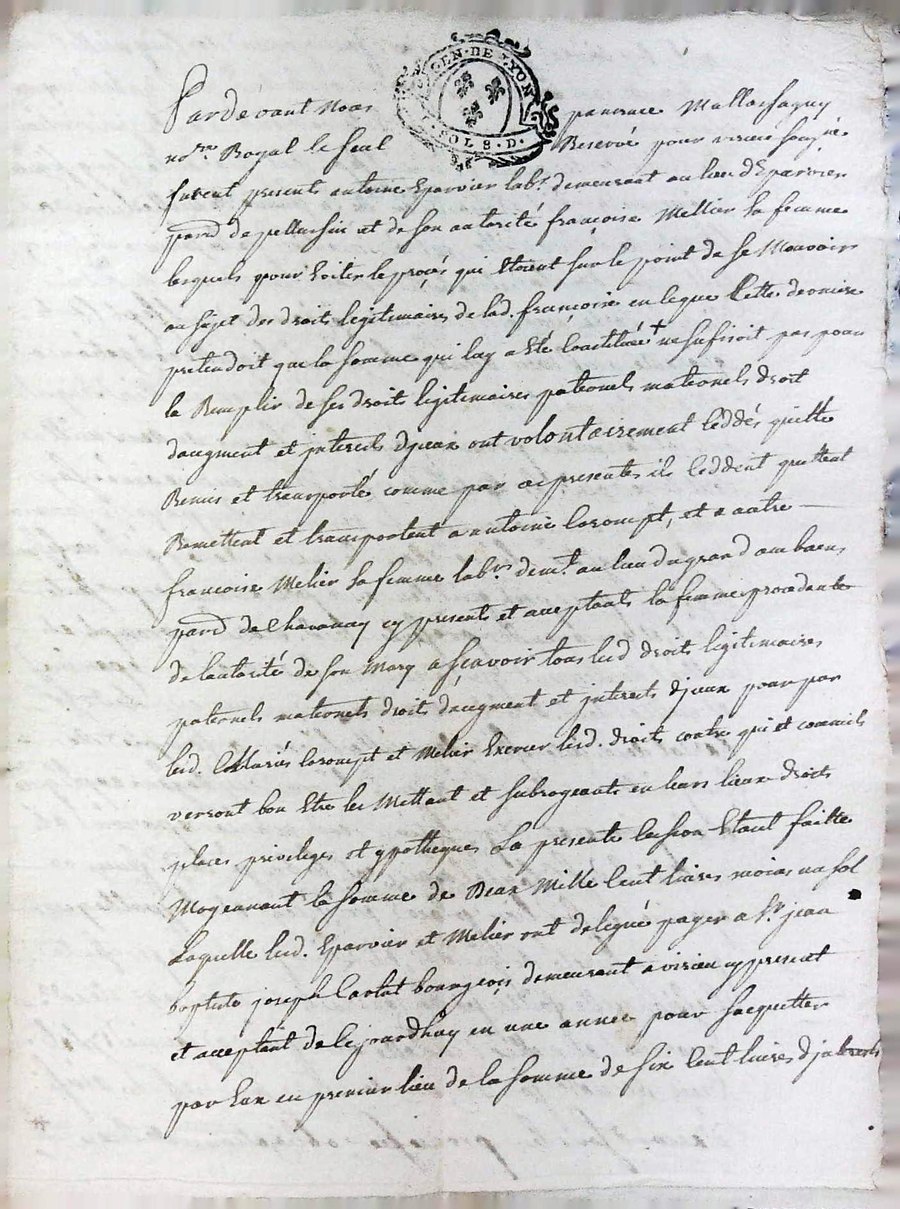 GEN·DE LYON
SOLS·D.
Pardevant Nous pancrace Mallassagny
nore Royal le seul Reservé pour virieu soussigné
furent presents antoine Eparvier labr. demeurant au lieu d'Eparvier
parsse de pellussin et de son autorité françoise Mellier sa femme
lesquels pour Eviter le procés qui Etoient sur le point de se Mouvoir
au sujet des droits legitimaires de lad. françoise en ce que Cette derniere
pretendoit que la somme qui luy a Eté Constituée + ne sufisoit pas pour
la Remplir de ses droits legitimaires paternels maternels droit
daugment et jnterets djceux ont volontairement Ceddés quitté
Remis et transporté comme par ces presentes ils Ceddent quittent
Remettent et transportent a antoine Corompt, et a autre
francoise Melier sa femme labrs. demt. au lieu du grand
parsse de Chavanay cy presents et acceptants la femme procedante
de lautorité de son Mary a sçavoir tous lesd droits legitimaires
paternels maternels droits daugment et jnterets djceux pour par
lesd. Mariés Corompt et Melier Exercer lesd. droits contre qui et comme ils
verront bon Etre les Mettant et subrogeants en leurs lieux droits
places privileges et ypotheques La presente Cession Etant faitte
Moyennant la somme de Deux Mille Cent livres moins un sol
Laquelle lesd. Eparvier et Melier ont delegué payer a Sr. jean
baptiste joseph bourgeois demeurant a virieu cy present
et acceptant de Cejourdhuy en une année pour sacquitter
par Eux en premier lieu de la somme de six Cent livres djnterets